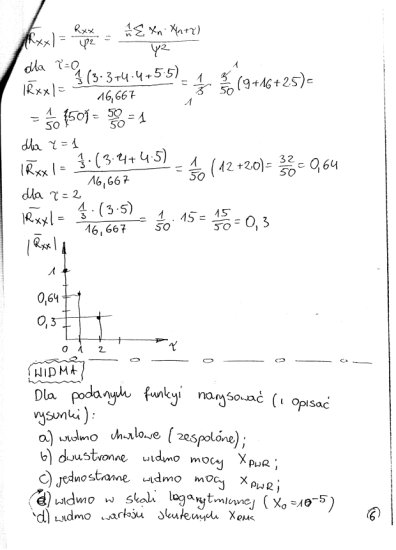 |R̄xx| = Rxx / ψ² = 1/n Σ Xn · Xn+τ / ψ²
dla τ=0
|R̄xx| = 1/3 (3·3+4·4+5·5) / 16,667 = 1/3 · 3/50 (9+16+25) =
= 1/50 [50] = 50/50 = 1
dla τ = 1
|R̄xx| = 1/3 · (3·4 + 4·5) / 16,667 = 1/50 (12+20) = 32/50 = 0,64
dla τ = 2
|R̄xx| = 1/3 · (3·5) / 16,667 = 1/50 · 15 = 15/50 = 0,3
|R̄xx|
1
0,64
0,3
0 1 2 τ
WIDMA
Dla podanych funkcji narysować (i opisać
rysunki):
a) widmo chwilowe (zespolone);
b) dwustronne widmo mocy XPWR;
c) jednostronne widmo mocy XPWR;
e) widmo w skali logarytmicznej (X₀=10⁻⁵)
d) widmo wartości skutecznych XRMS
6